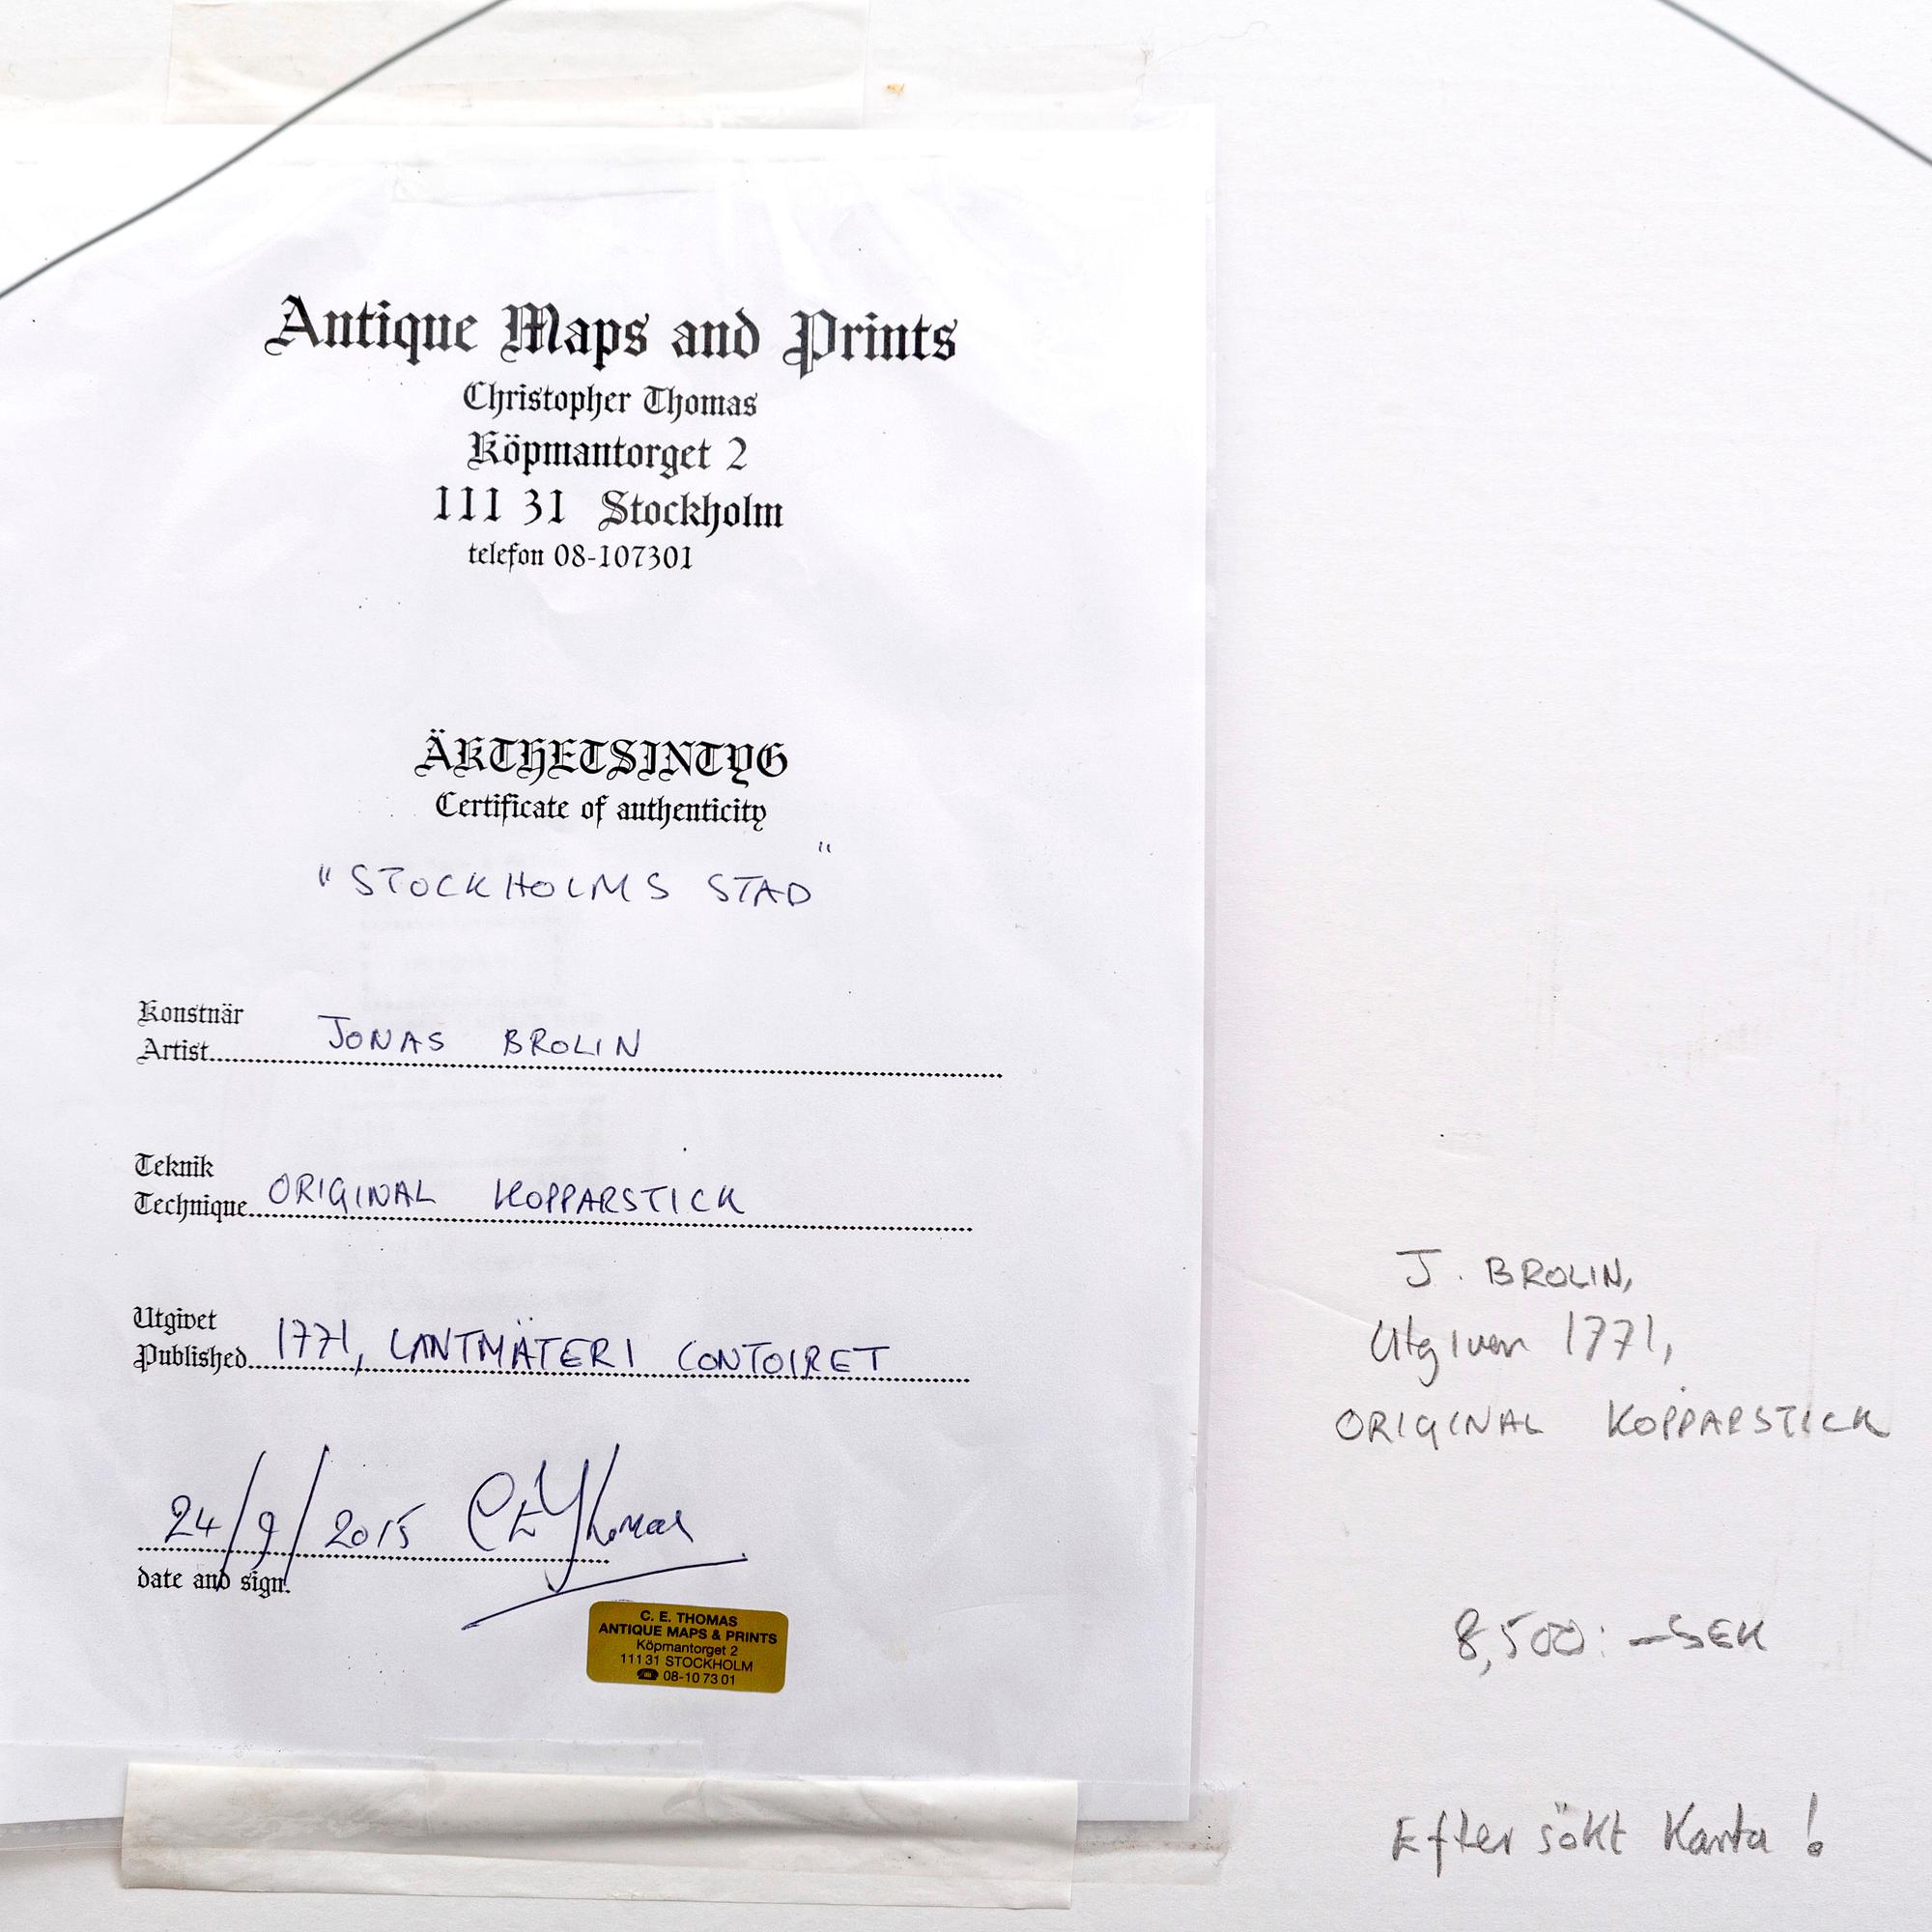 Antique Maps and Prints
Christopher Thomas
Köpmantorget 2
111 31 Stockholm
telefon 08-107301
ÄKTHETSINTYG
Certificate of authenticity
"STOCKHOLMS STAD"
Konstnär
Artist JONAS BROLIN
Teknik
Technique ORIGINAL KOPPARSTICK
Utgivet
Published 1771, LANTMÄTERI CONTOIRET
24/9/2015 C E Thomas
date and sign.
C. E. THOMAS
ANTIQUE MAPS & PRINTS
Köpmantorget 2
111 31 STOCKHOLM
☎ 08-10 73 01
J. BROLIN,
Utgiven 1771,
ORIGINAL KOPPARSTICK
8,500:-SEK
Efter sökt Karta!